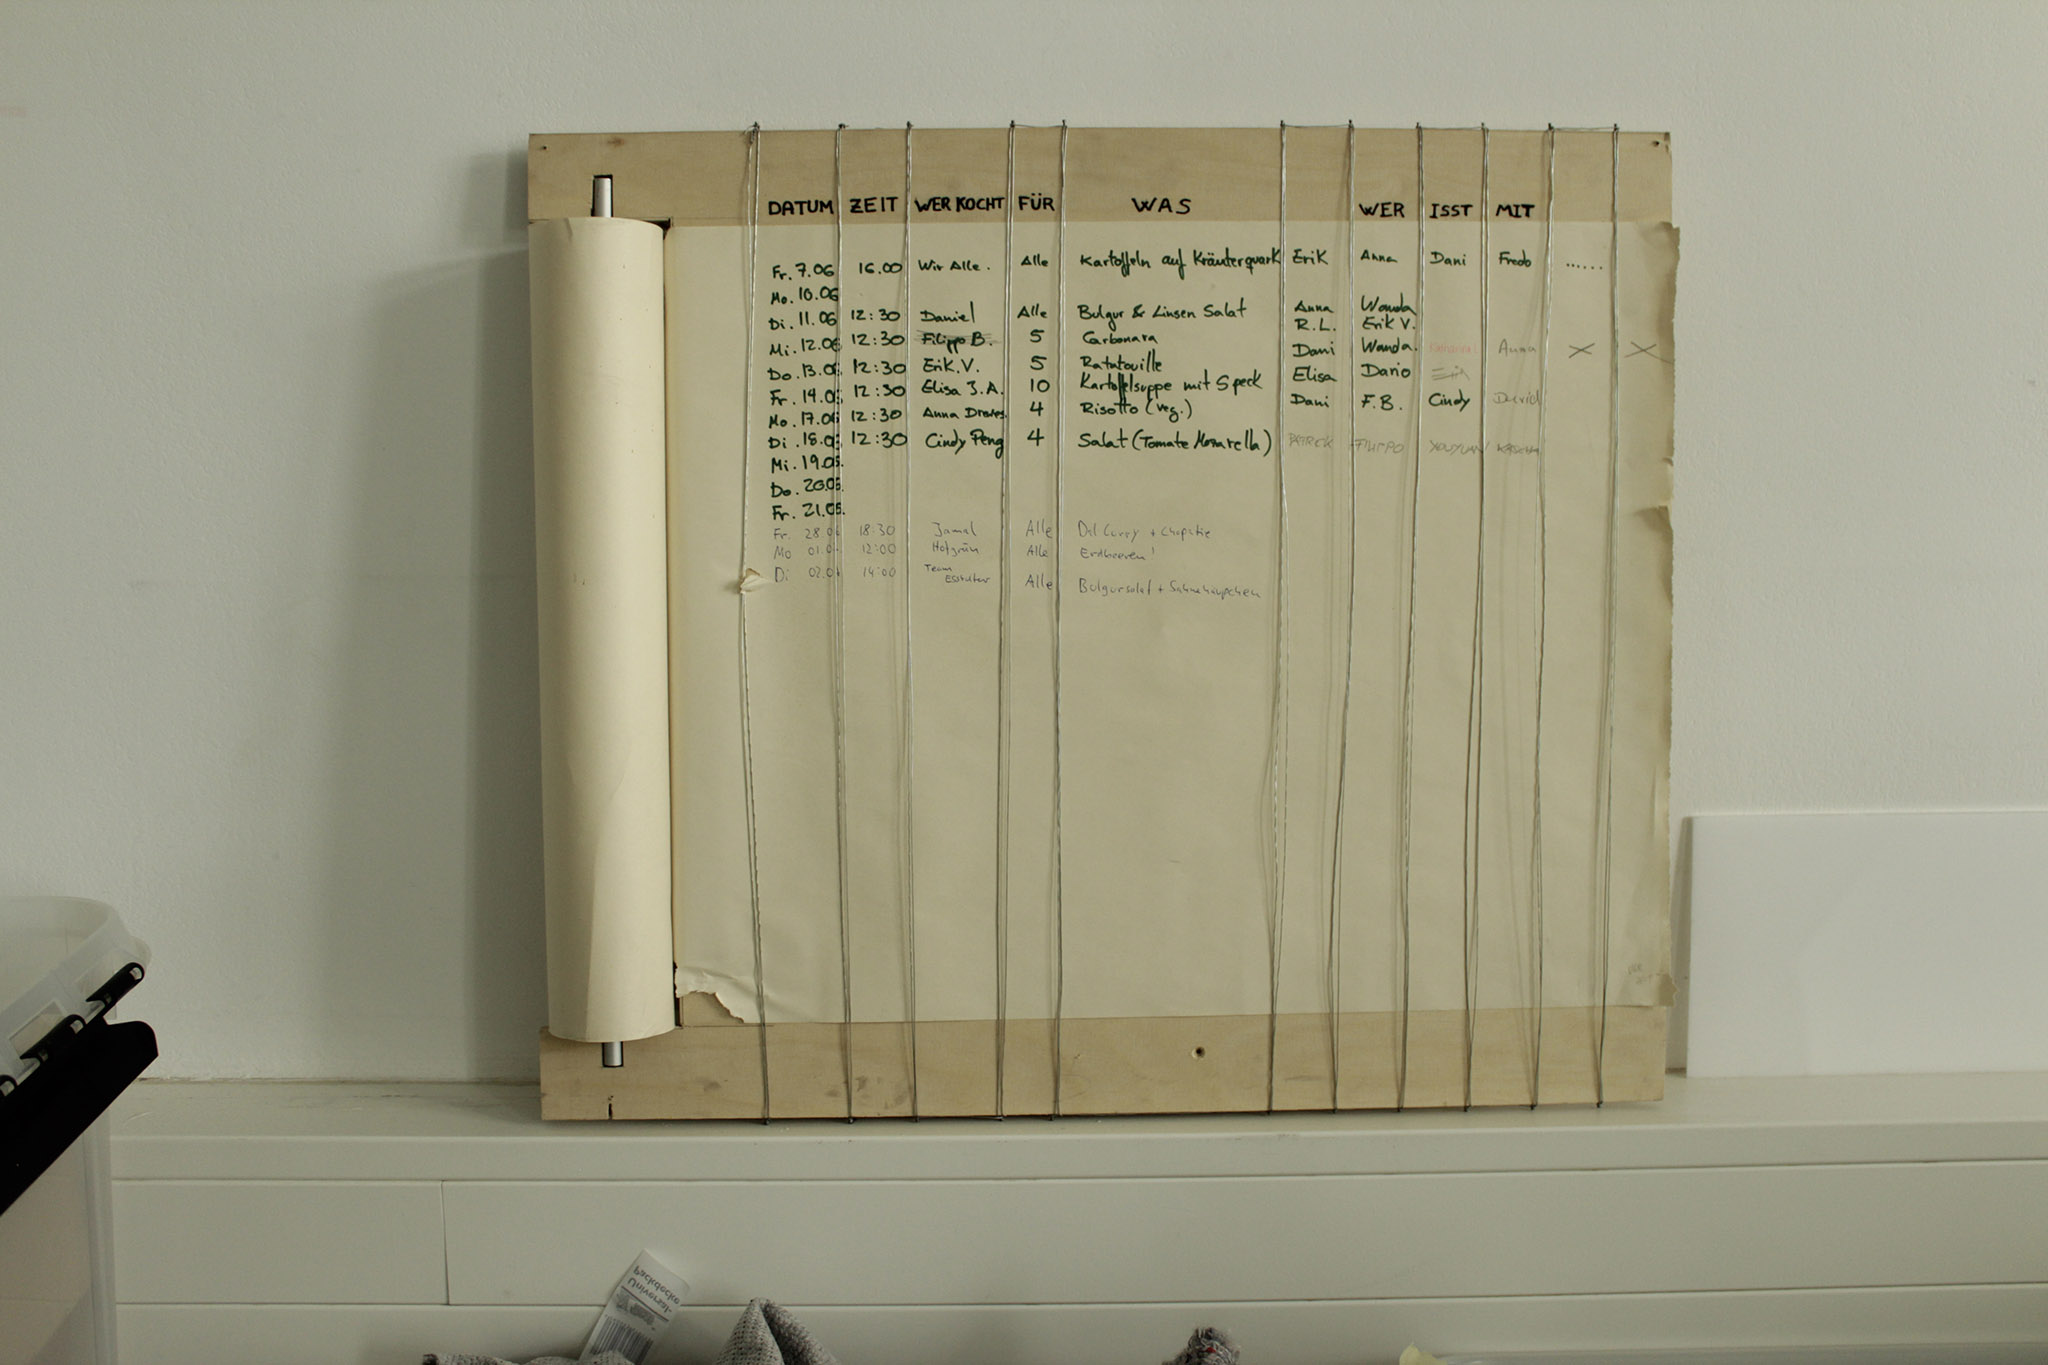 DATUM ZEIT WER KOCHT FÜR WAS WER ISST MIT
Fr. 7.06 16.00 Wir Alle. Alle Kartoffeln auf Kräuterquark Erik Anna Dani Fredo ......
Mo. 10.06
Di. 11.06 12:30 Daniel Alle Bulgur & Linsen Salat Anna Wanda
R.L. Erik V.
Mi. 12.06 12:30 Filippo B. 5 Carbonara Dani Wanda. Anna X X
Do. 13.06 12:30 Erik.V. 5 Ratatouille Elisa Dario
Fr. 14.06 12:30 Elisa J.A. 10 Kartoffelsuppe mit Speck Dani F.B. Cindy David
Mo. 17.06 12:30 Anna Drewes 4 Risotto (veg.)
Di. 18.06 12:30 Cindy Peng 4 Salat (Tomate Mozarella) PATRICK FILIPPO
Mi. 19.06.
Do. 20.06.
Fr. 21.06.
Fr. 28.06 18:30 Jamal Alle Dal Curry + Chapatie
Mo 01.0 12:00 Hofgrün Alle Erdbeeren!
Di 02.0 14:00 Team Alle Bulgursalat +
Universal-
Packdecke